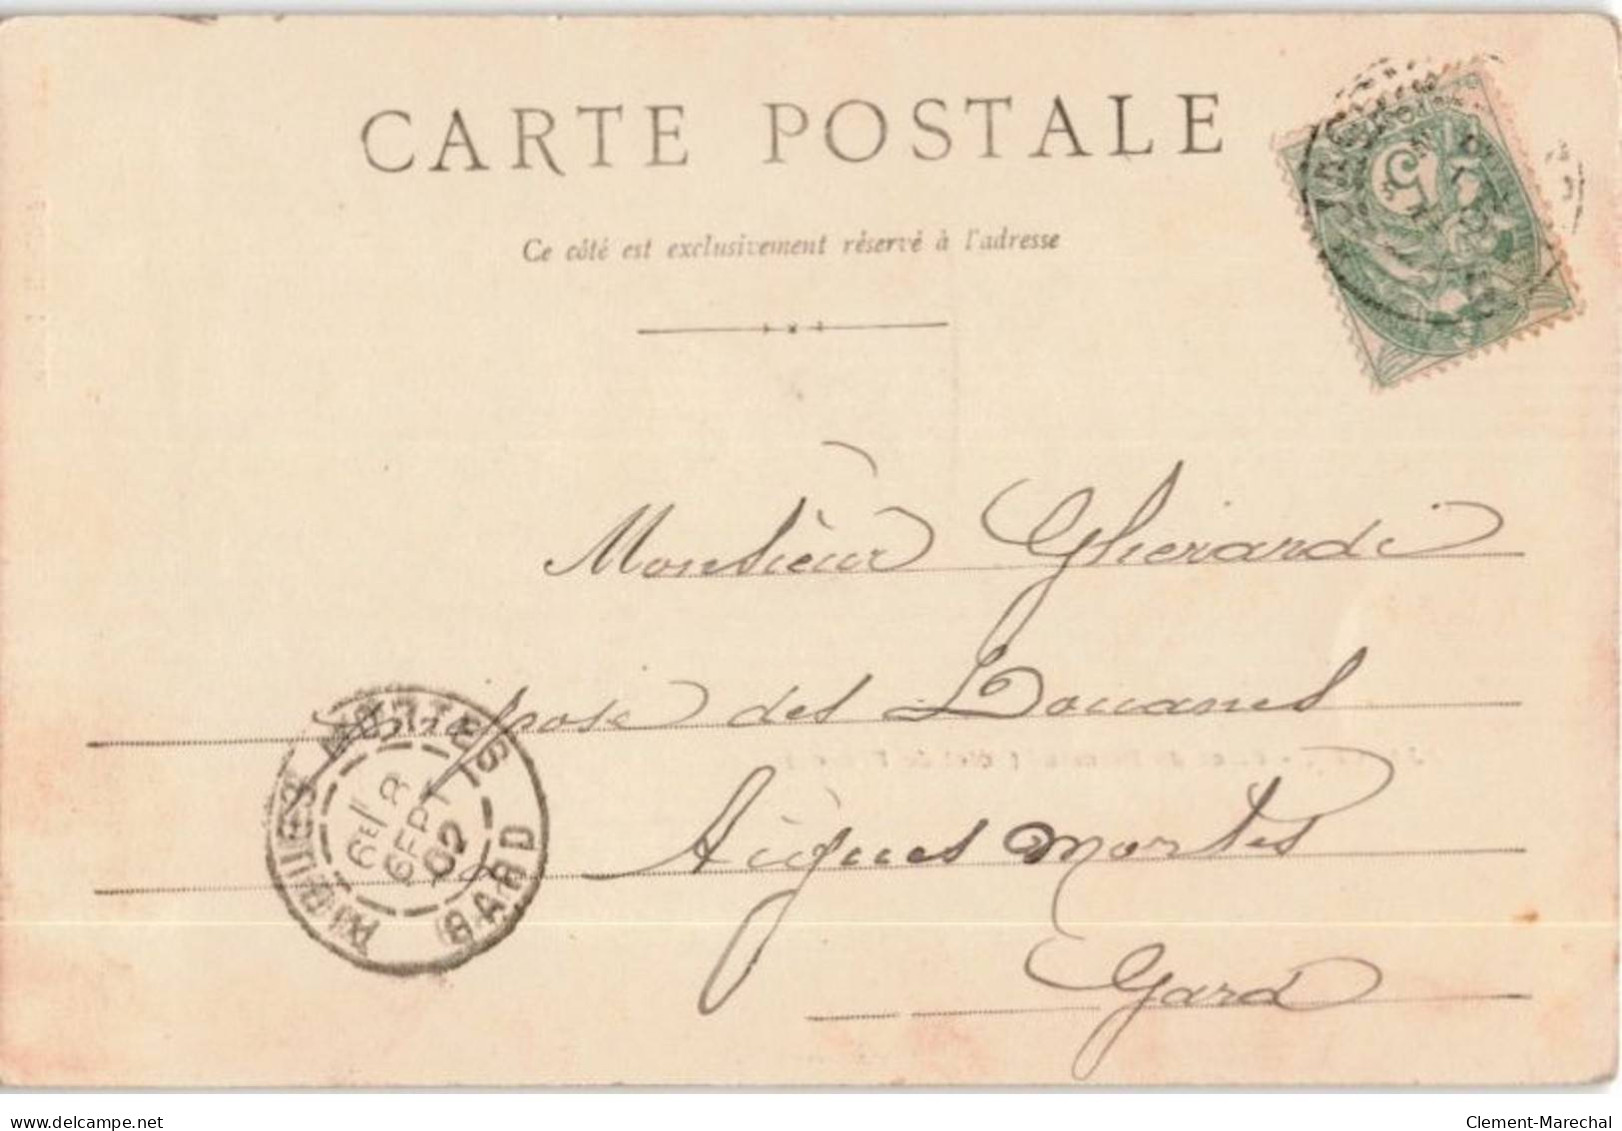 CARTE POSTALE
Ce côté est exclusivement réservé à l'adresse
5
Monsieur Gherardi
des Douanes
Aigues mortes
Gard
AIGUES MORTES
8
SEPT
02
GARD
www.delcampe.net
Clement-Marechal